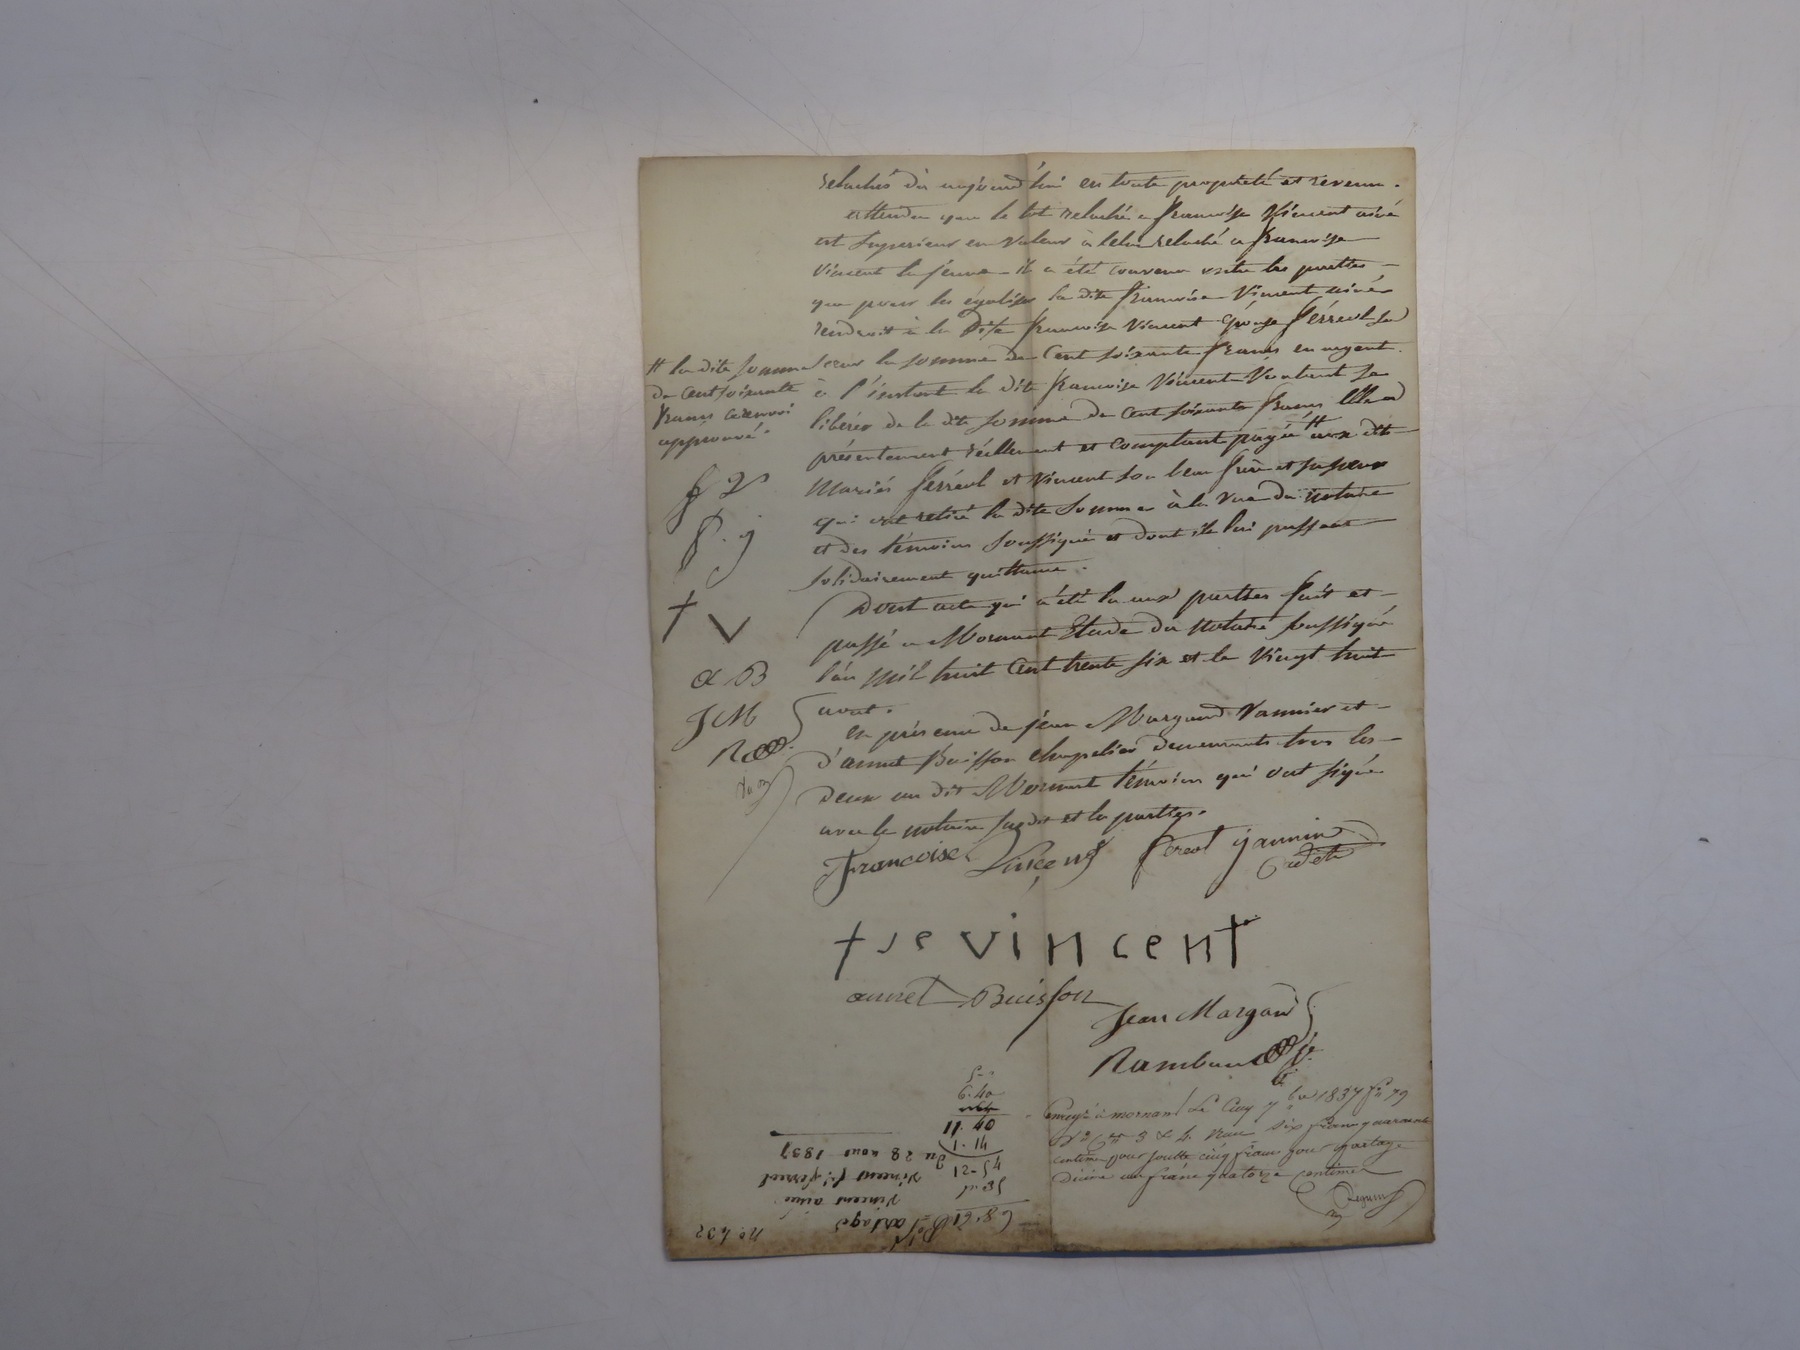 relachés dès aujourd'hui en toute propriété et revenu.
attendu que le lot relaché a françoise Vincent ainé
est superieur en valeur à celui relaché a françoise
Vincent la jeune - il a été convenu entre les parties -
que pour les égaliser la dite françoise Vincent ainée
rendroit à la dite françoise Vincent épouse ferréol sa
soeur la somme de Cent soixante francs en argent.
à l'instant la dite françoise Vincent voulant se
libérer de la dite somme de cent soixante francs elle a
présentement réellement et comptant payée # aux dits
Mariés ferréol et Vincent son beau frère et sa soeur
qui ont retiré la dite somme à la vue du notaire
et des témoins soussignés et dont ils lui passent
solidairement quittance.
# la dite somme
de cent soixante
francs a renvoi
approuvé.
f V
f. j
† V
a B
J M
R
Dont acte qui a été lu aux parties fait et -
passé a Mornant Etude du notaire soussigné
l'an Mil huit Cent trente six et le vingt huit
aout.
En présence de jean Margand Vannier et -
d'annet Buisson chapelier demeurants tous les -
deux au dit Mornant témoins qui ont signé
avec le notaire susdit et les parties.
Françoise Vinçent
fereol jannin
Cadet
† se vincent
annet Buisson
Jean Margand
Rambaud
6.40
11.40
11.1
45-21
enregé à mornant Le Cinq 7bre 1837 fo 79
Vo Cen 3 & 4. reçu six francs quarante
centimes pour soulte cinq francs pour partage
Dixième un franc quatorze centimes
No. 432
Partage
Vincent ainée
Vincent fe ferreol
Du 28 aout 1837